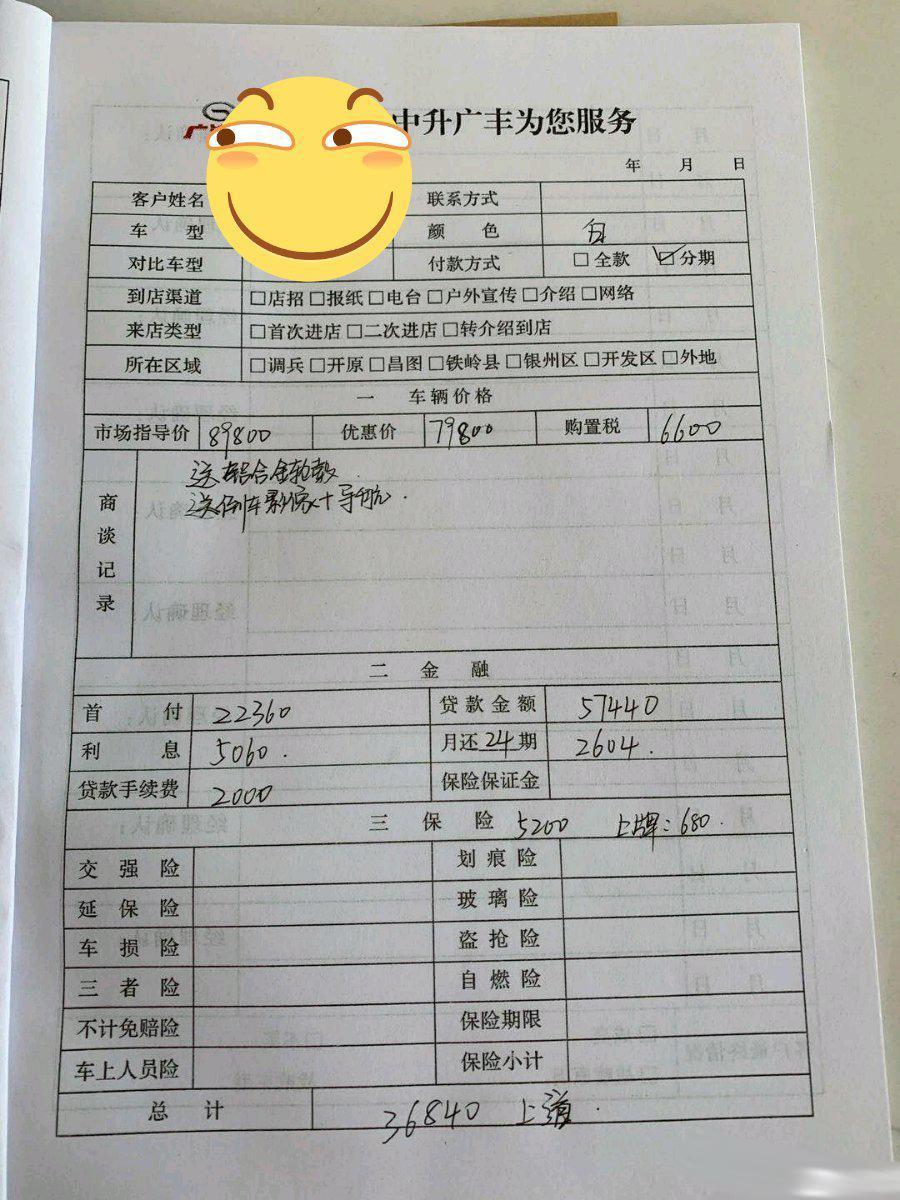 中升广丰为您服务
年 月 日
客户姓名 联系方式
车 型 颜 色 白
对比车型 付款方式 □全款 ☑分期
到店渠道 □店招 □报纸 □电台 □户外宣传 □介绍 □网络
来店类型 □首次进店 □二次进店 □转介绍到店
所在区域 □调兵 □开原 □昌图 □铁岭县 □银州区 □开发区 □外地
一 车辆价格
市场指导价 89800 优惠价 79800 购置税 6600
商谈记录
送铝合金轮毂
送倒车影像+导航.
二 金 融
首 付 22360 贷款金额 57440
利 息 5060. 月还24期 2604.
贷款手续费 2000 保险保证金
三 保 险 5200 上牌：680.
交强险 划痕险
延保险 玻璃险
车损险 盗抢险
三者险 自燃险
不计免赔险 保险期限
车上人员险 保险小计
总 计 36840 上道.